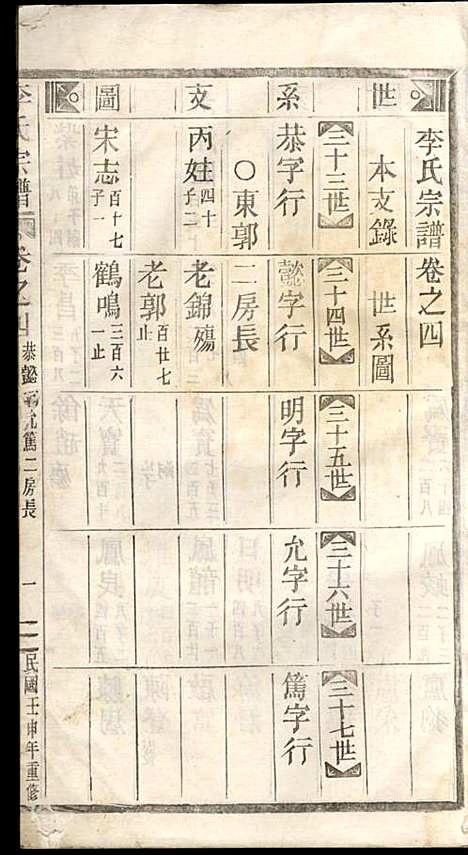 世系支圖
李氏宗譜卷之四
本支錄 世系圖
三十三世 三十四世 三十五世 三十六世 三十七世
恭字行 懿字行 明字行 允字行 篤字行
〇東郭二房長
丙姓 四十 子二 老錦 殤
老郭 百廿七 止
宋志 百十七 子一 鶴鳴 三百六一止
李氏宗譜 卷之四 恭懿明允篤二房長 一 民國壬申年重修